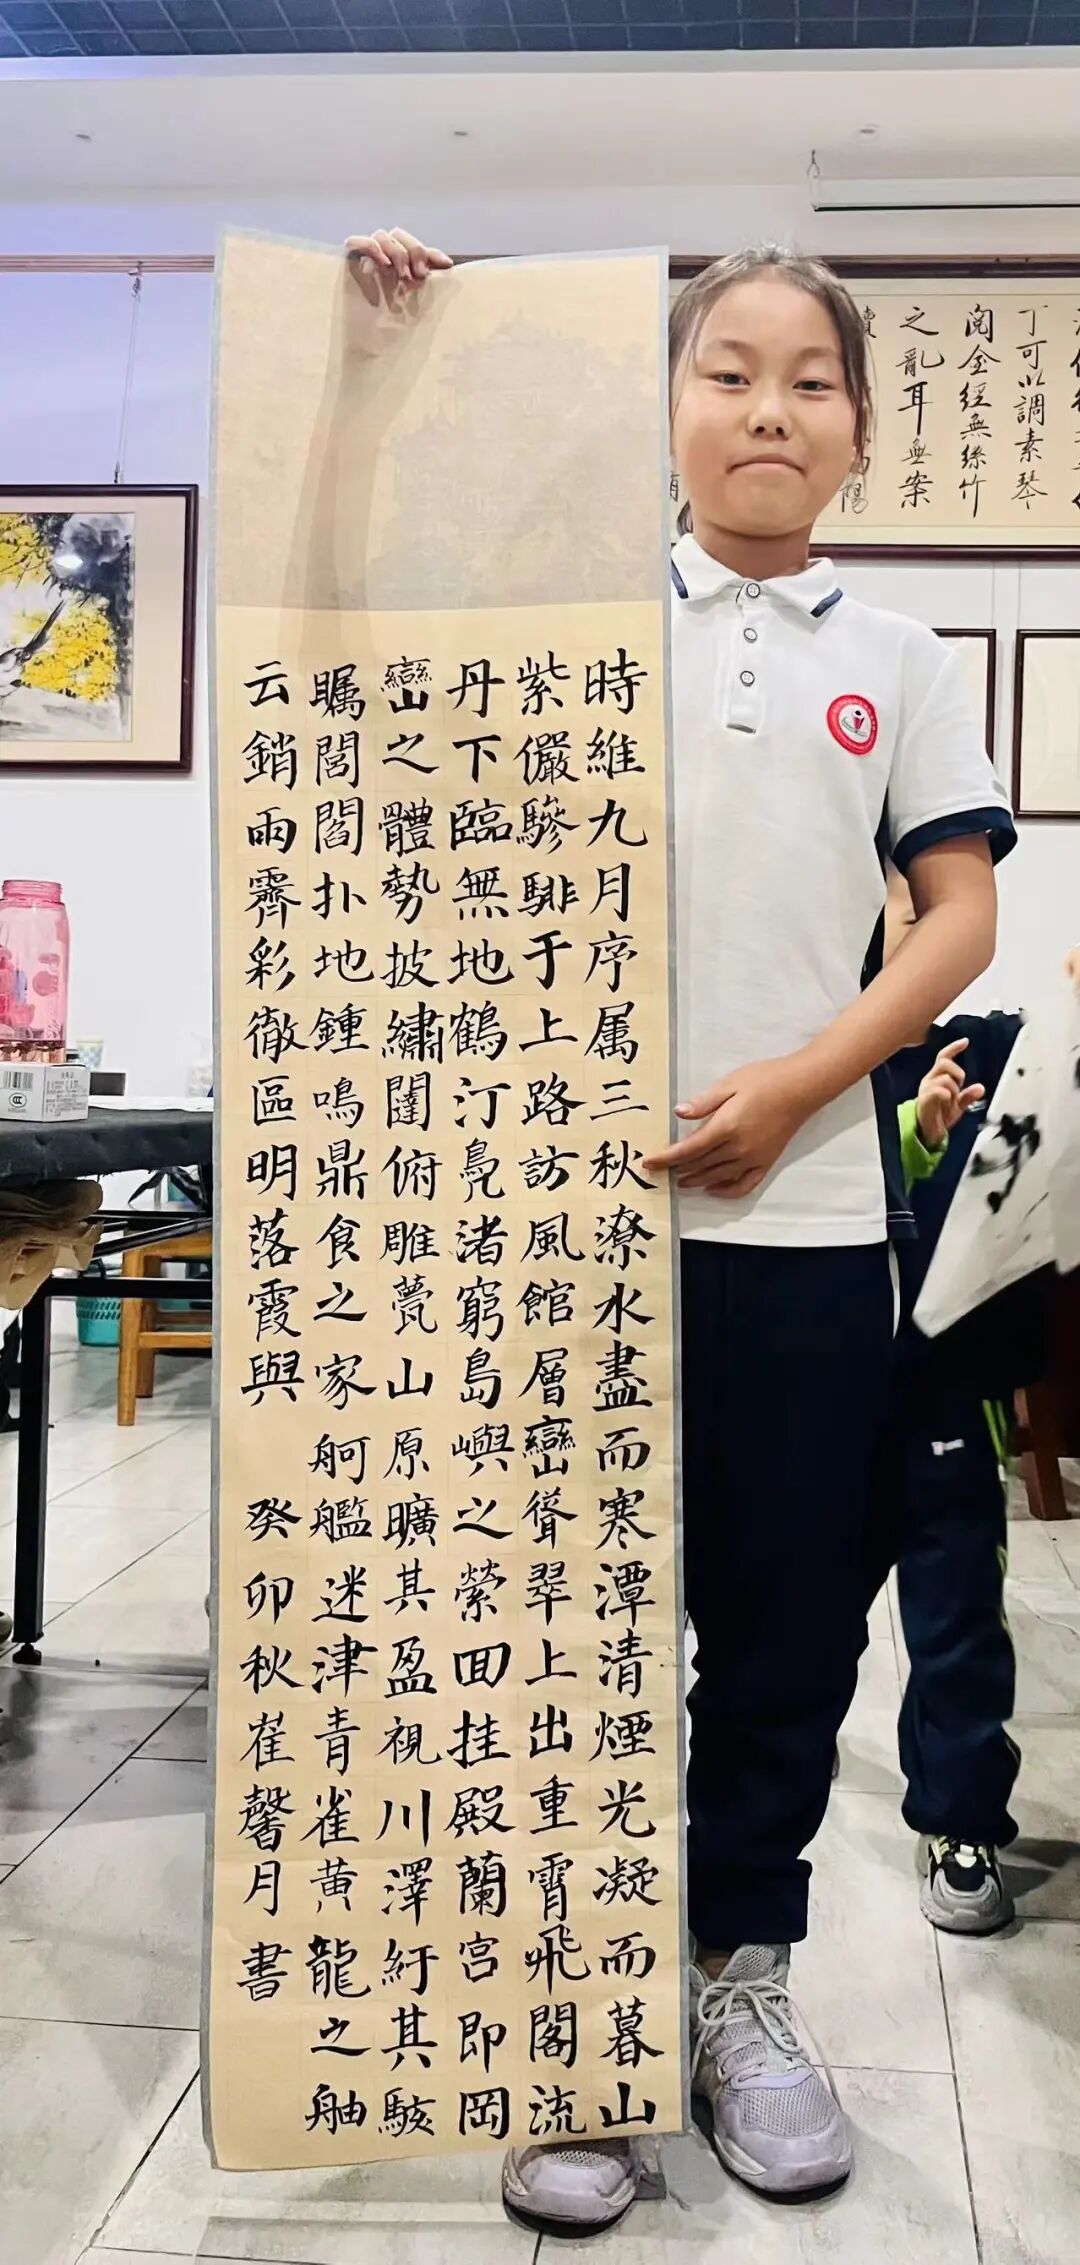 時維九月序属三秋潦水盡而寒潭清煙光凝而暮山
紫儼驂騑于上路訪風館層巒聳翠上出重霄飛閣流
丹下臨無地鶴汀鳧渚窮島嶼之縈囬挂殿蘭宮即岡
巒之體勢披繡闥俯雕甍山原曠其盈視川澤紆其駭
矚閭閻扑地鍾鳴鼎食之家舸艦迷津青雀黃龍之舳
云銷雨霽彩徹區明落霞與
癸卯秋崔馨月書
丁可以調素琴
閱金經無絲竹
之亂耳無案